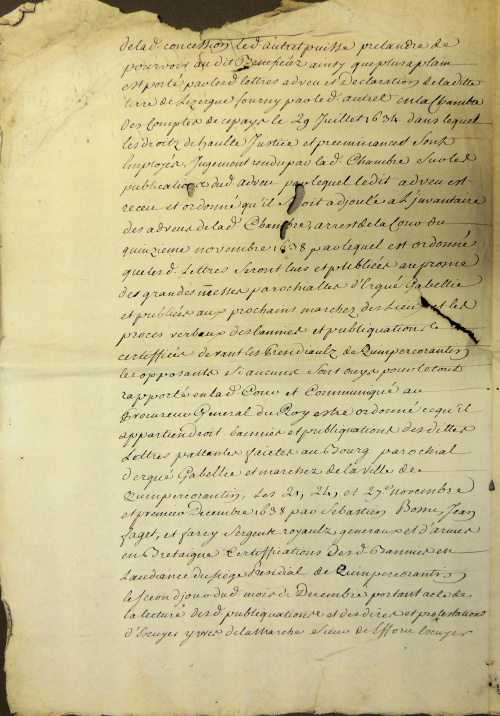 de lad. concession led. autret puisse pretandre de
pourvoir audit Beneficiex ainsy que plus a plain
est porté par lesd. lettres adveu et declaration de la ditte
terre de Lezergue fourny par led. autret en la Chambre
des Comptes de ce pays le 29 Juillet 1634 dans lequel
les droitz de haulte Justice et preeminances sont
Employés, Jugement rendu par lad. Chambre sur les
publications dud. adveu par lequel ledit adveu est
receu et ordonné qu'il soit adjousté a L'jnvantaire
des adveus de lad. Chambre, arrest de la Cour du
quinzieme novembre 1638 par lequel est ordonné
que lesd. Lettres seront lues et publiées au prosne
des grandes messes parochialles d'Ergué Gabellic
et publiés aux prochains marchez des Lieux et les
proces verbaux des bannies et publiquations
certiffiées devant les Presidiaulx de Quimpercorantin
les opposants si aucuns sont ouys pour le tout
rapporté en lad. Cour et Communiqué au
Procureur General du Roy estre ordonné ce qu'il
appartiendroit bannies et publiquations des dittes
Lettres pattantes faictes au Bourg parochial
d'ergué Gabellic et marchez de la ville de
Quimpercorantin, Les 21, 24, et 27e novembre
et premier Decembre 1638 par Sebastien Jean
et farcy Sergents royaulx, generaux et d'armes
en Bretaigne Certiffications desd. Bannies en
L'audiance du siege Presidial de Quimpercorantin
le second jour dud. mois de Decembre portant acte de
la lecture desd. publiquations et des dires et protestations
d'Escuyer yves de la Marche sieur de Escuyer